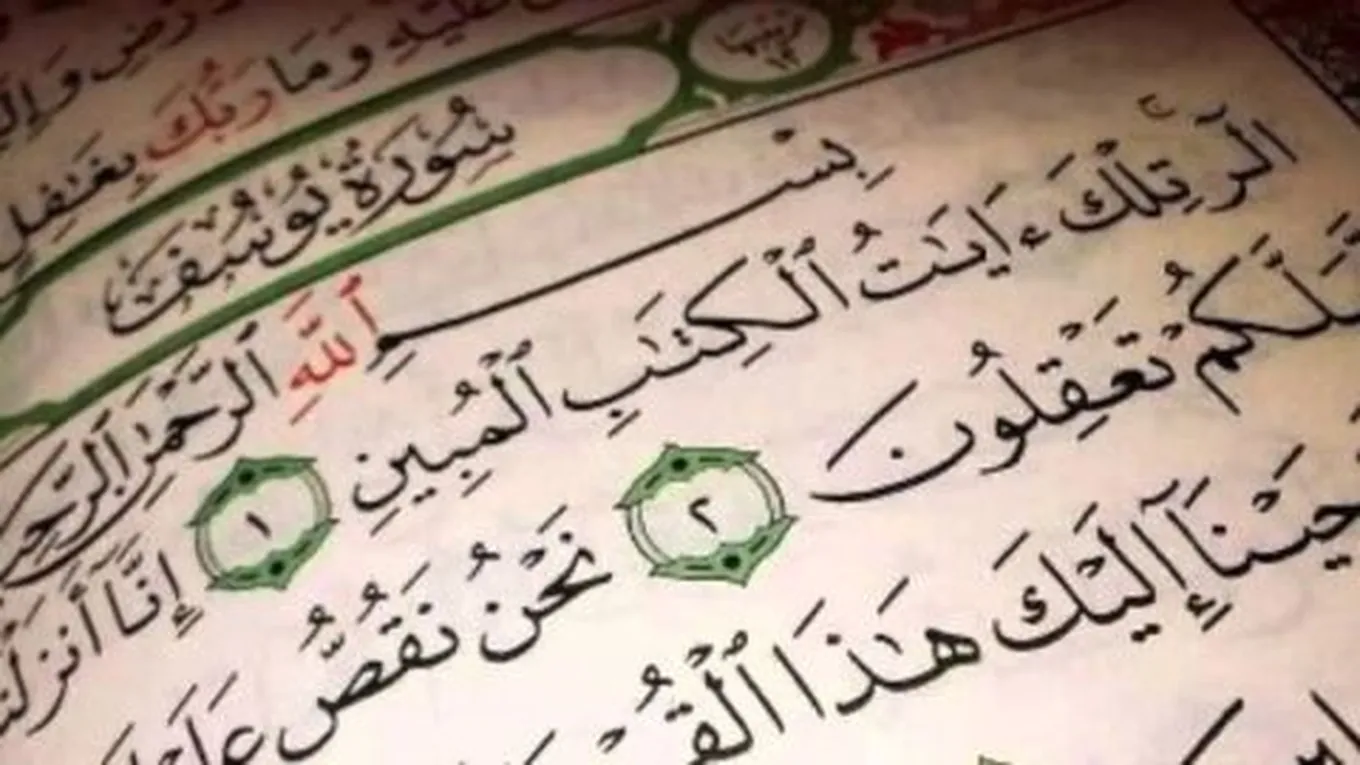 وَمَا رَبُّكَ بِغَٰفِلٍ
سُورَةُ يُوسُفَ
بِسْمِ ٱللَّهِ ٱلرَّحْمَٰنِ ٱلرَّحِ
الٓر تِلْكَ ءَايَٰتُ ٱلْكِتَٰبِ ٱلْمُبِينِ ١ إِنَّآ أَنزَلْنَ
لَّعَلَّكُمْ تَعْقِلُونَ ٢ نَحْنُ نَقُصُّ عَلَ
حَيْنَآ إِلَيْكَ هَٰذَا ٱلْقُرْ